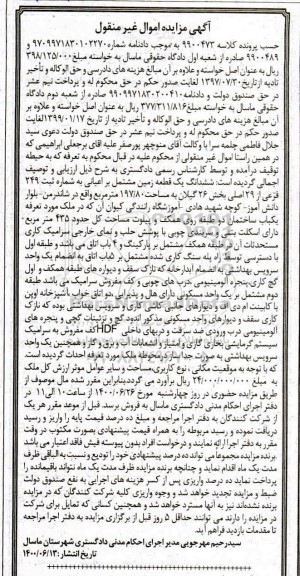 آگهی مزایده اموال غیر منقول
حسب پرونده کلاسه ۹۹۰۰۴۷۳ به موجب دادنامه شماره ۹۷۰۹۹۷۱۸۳۰۱۰۲۲۷۰ و
۹۹۰۰۴۸۹ صادره از شعبه اول دادگاه حقوقی ماسال به خواسته مبلغ ۳۹۸/۱۲۵/۰۰۰
ریال به عنوان اصل خواسته و علاوه بر آن مبالغ هزینه های دادرسی و حق الوکاله و تأخیر
تادیه از تاریخ ۱۳۹۷/۰۷/۳۰ لغایت صدور حکم در حق محکوم له و پرداخت نیم عشر
در حق صندوق دولت و دادنامه ۹۹۰۹۹۷۱۸۳۰۲۰۰۴۱۰ صادره از شعبه دوم دادگاه
حقوقی ماسال به خواسته مبلغ ۳۷۷/۳۱۱/۸۱۶ ریال به عنوان اصل خواسته و علاوه بر
آن مبالغ هزینه های دادرسی و حق الوکاله و تأخیر تادیه از تاریخ ۱۳۹۹/۰۱/۱۷ لغایت
صدور حکم در حق محکوم له و پرداخت نیم عشر در حق صندوق دولت دعوی سید
جلال فاطمی چلمه سرا با وکالت آقای منوچهر پورصفر علیه آقای برجعلی ابراهیمی که
در همین راستا اموال غیر منقولی از محکوم علیه در قبال محکوم به تعرفه که به حیطه
توقیف درآمده و توسط کارشناس رسمی دادگستری به شرح ذیل ارزیابی و توصیف
اجمالی گردیده است: ششدانگ یک قطعه زمین مشتمل بر اعیانی به شماره ثبت ۲۴۹
فرعی از ۲۹ اصلی بخش ۲۶ گیلان به مساحت ۱۹۷/۸۰ مترمربع واقع در شاندرمن- بلوار
دانش آموز- کوچه شهید هادی- آموزشگاه رانندگی کیوان آن که در ملک مورد تعرفه
یکباب ساختمان دو طبقه روی همکف و پیلوت مساحت کل حدود ۴۳۵ متر مربع
دارای اسکلت بتنی و شیروانی چوبی با پوشش حلب و نمای خارجی سرامیک کاری
مستحدثات آن در طبقه همکف مشتمل بر پارکینگ و ۴ باب اتاق می باشد و طبقه اول
با دسترسی توسط راه پله سنگ کاری شده مشتمل بر ۵ باب اتاق به انضمام یک واحد
سرویس بهداشتی به انضمام آبدارخانه که نازک سقف و دیواره های طبقه همکف و اول
گچ کاری پنجره آلومینیومی، درب های چوبی و کف مفروش سرامیک می باشد طبقه
دوم مشتمل بر یک واحد مسکونی دارای هال و پذیرایی، دو اتاق خواب، آشپزخانه اوپن
با کابینت ام دی اف و دیوارهای جانبی کاشی کاری و سرویس بهداشتی بوده که نازک
کاری سقف و دیوارهای واحد مسکونی مذکور اندود گچ و تزئینات گچی و پنجره های
آلومینیومی درب ورودی ضد سرقت و دربهای داخلی HDF کف مفروش به سرامیک
سیستم گرمایشی بخاری گازی و امتیاز و انشعابات آب و برق و گاز و همچنین یک واحد
سرویس بهداشتی به صورت جدا سازه در محوطه ملک مورد تعرفه احداث گردیده است.
که با توجه به موقعیت مکانی، نوع کاربری، مساحت و سایر عوامل موثر ارزش کل ملک
به مبلغ ۲۴/۰۰۰/۰۰۰/۰۰۰ ریال برآورد می گردد بنابراین مقرر شده مال موصوف از
طریق مزایده حضوری در روز چهارشنبه مورخ ۱۴۰۰/۰۶/۲۶ از ساعت ۱۰ الی ۱۱ در
دفتر اجرای احکام مدنی دادگستری ماسال به فروش برسد. قبل از موعد مقرر هر یک
از شرکت کنندگان به دفتر اجرا مراجعه و مبلغ ده درصد قیمت پایه را واریز و رسید
دریافت نموده و رسید مربوطه را به همراه قیمت پیشنهادی بصورت مکتوب در وقت
مقرر به دفتر اجرا ارائه نمایند و درخواست افراد بدون پیوسته فیش فاقد اعتبار می باشد
برنده مزایده مجموعاً می تواند ده درصد پیشنهادی خود را تودیع و نسبت به الباقی ظرف
مدت یک ماه اقدام نماید و چنانچه برنده مزایده ظرف مدت یک ماه نتواند باقیمانده را
پرداخت نماید ده درصد واریزی پس از کسر هزینه های اجرایی به نفع صندوق دولت
ضبط و مزایده تجدید خواهد شد و وجوه واریزی کلیه شرکت کنندگان که در مزایده
برنده نشده‌اند نیز به آنها مسترد خواهد شد و همچنین کسانی که تمایل برای شرکت
در مزایده را دارند می توانند حداقل ۵ روز قبل از برگزاری مزایده به دفتر اجرا مراجعه
تا مقدمات بازدید فراهم آید.
سیدرحیم مهرجویی مدیر اجرای احکام مدنی دادگستری شهرستان ماسال
تاریخ انتشار: ۱۴۰۰/۰۶/۱۳